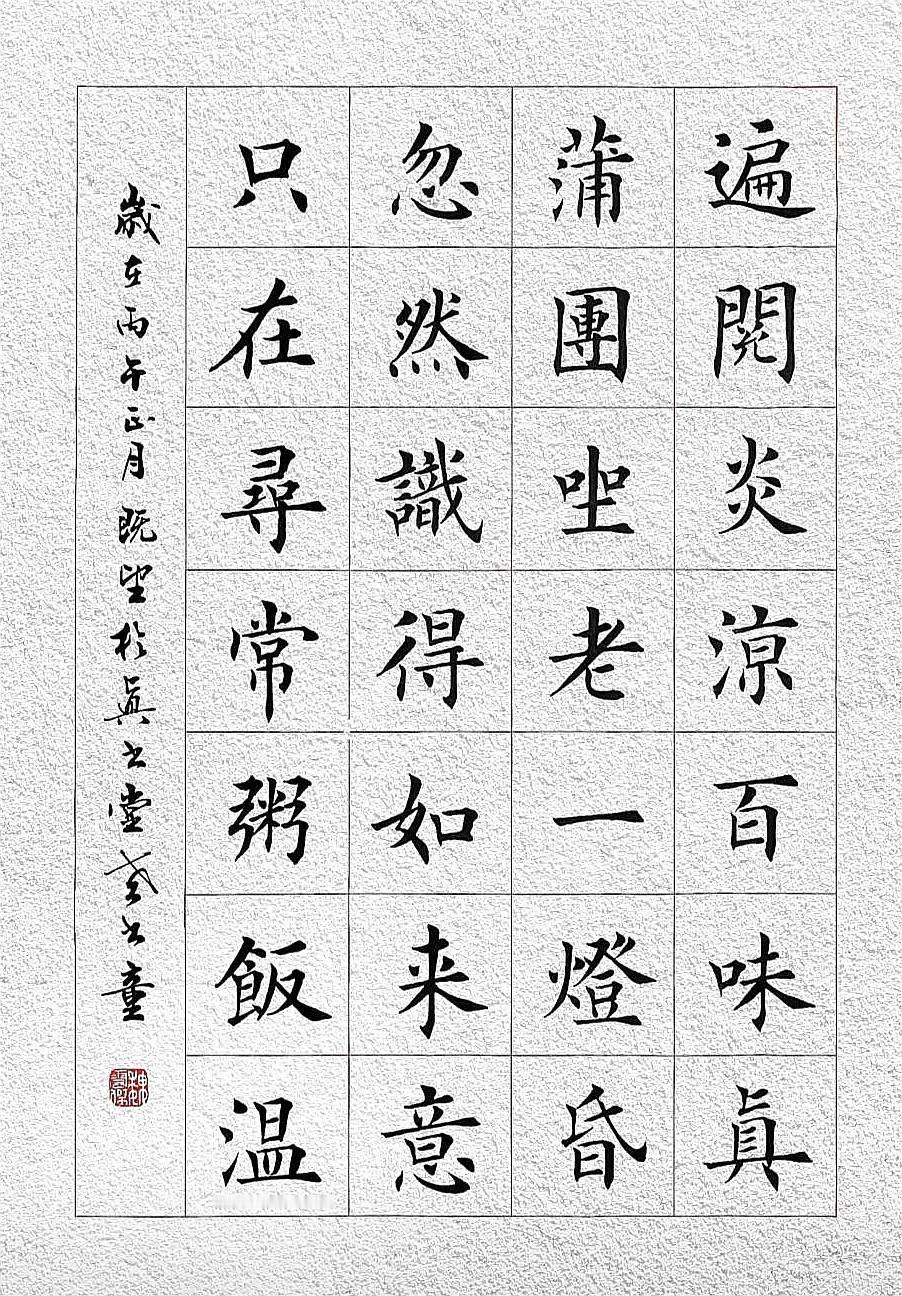 遍閱炎涼百味眞
蒲團坐老一燈昏
忽然識得如来意
只在尋常粥飯温
歲在丙午正月既望於眞書堂老书童